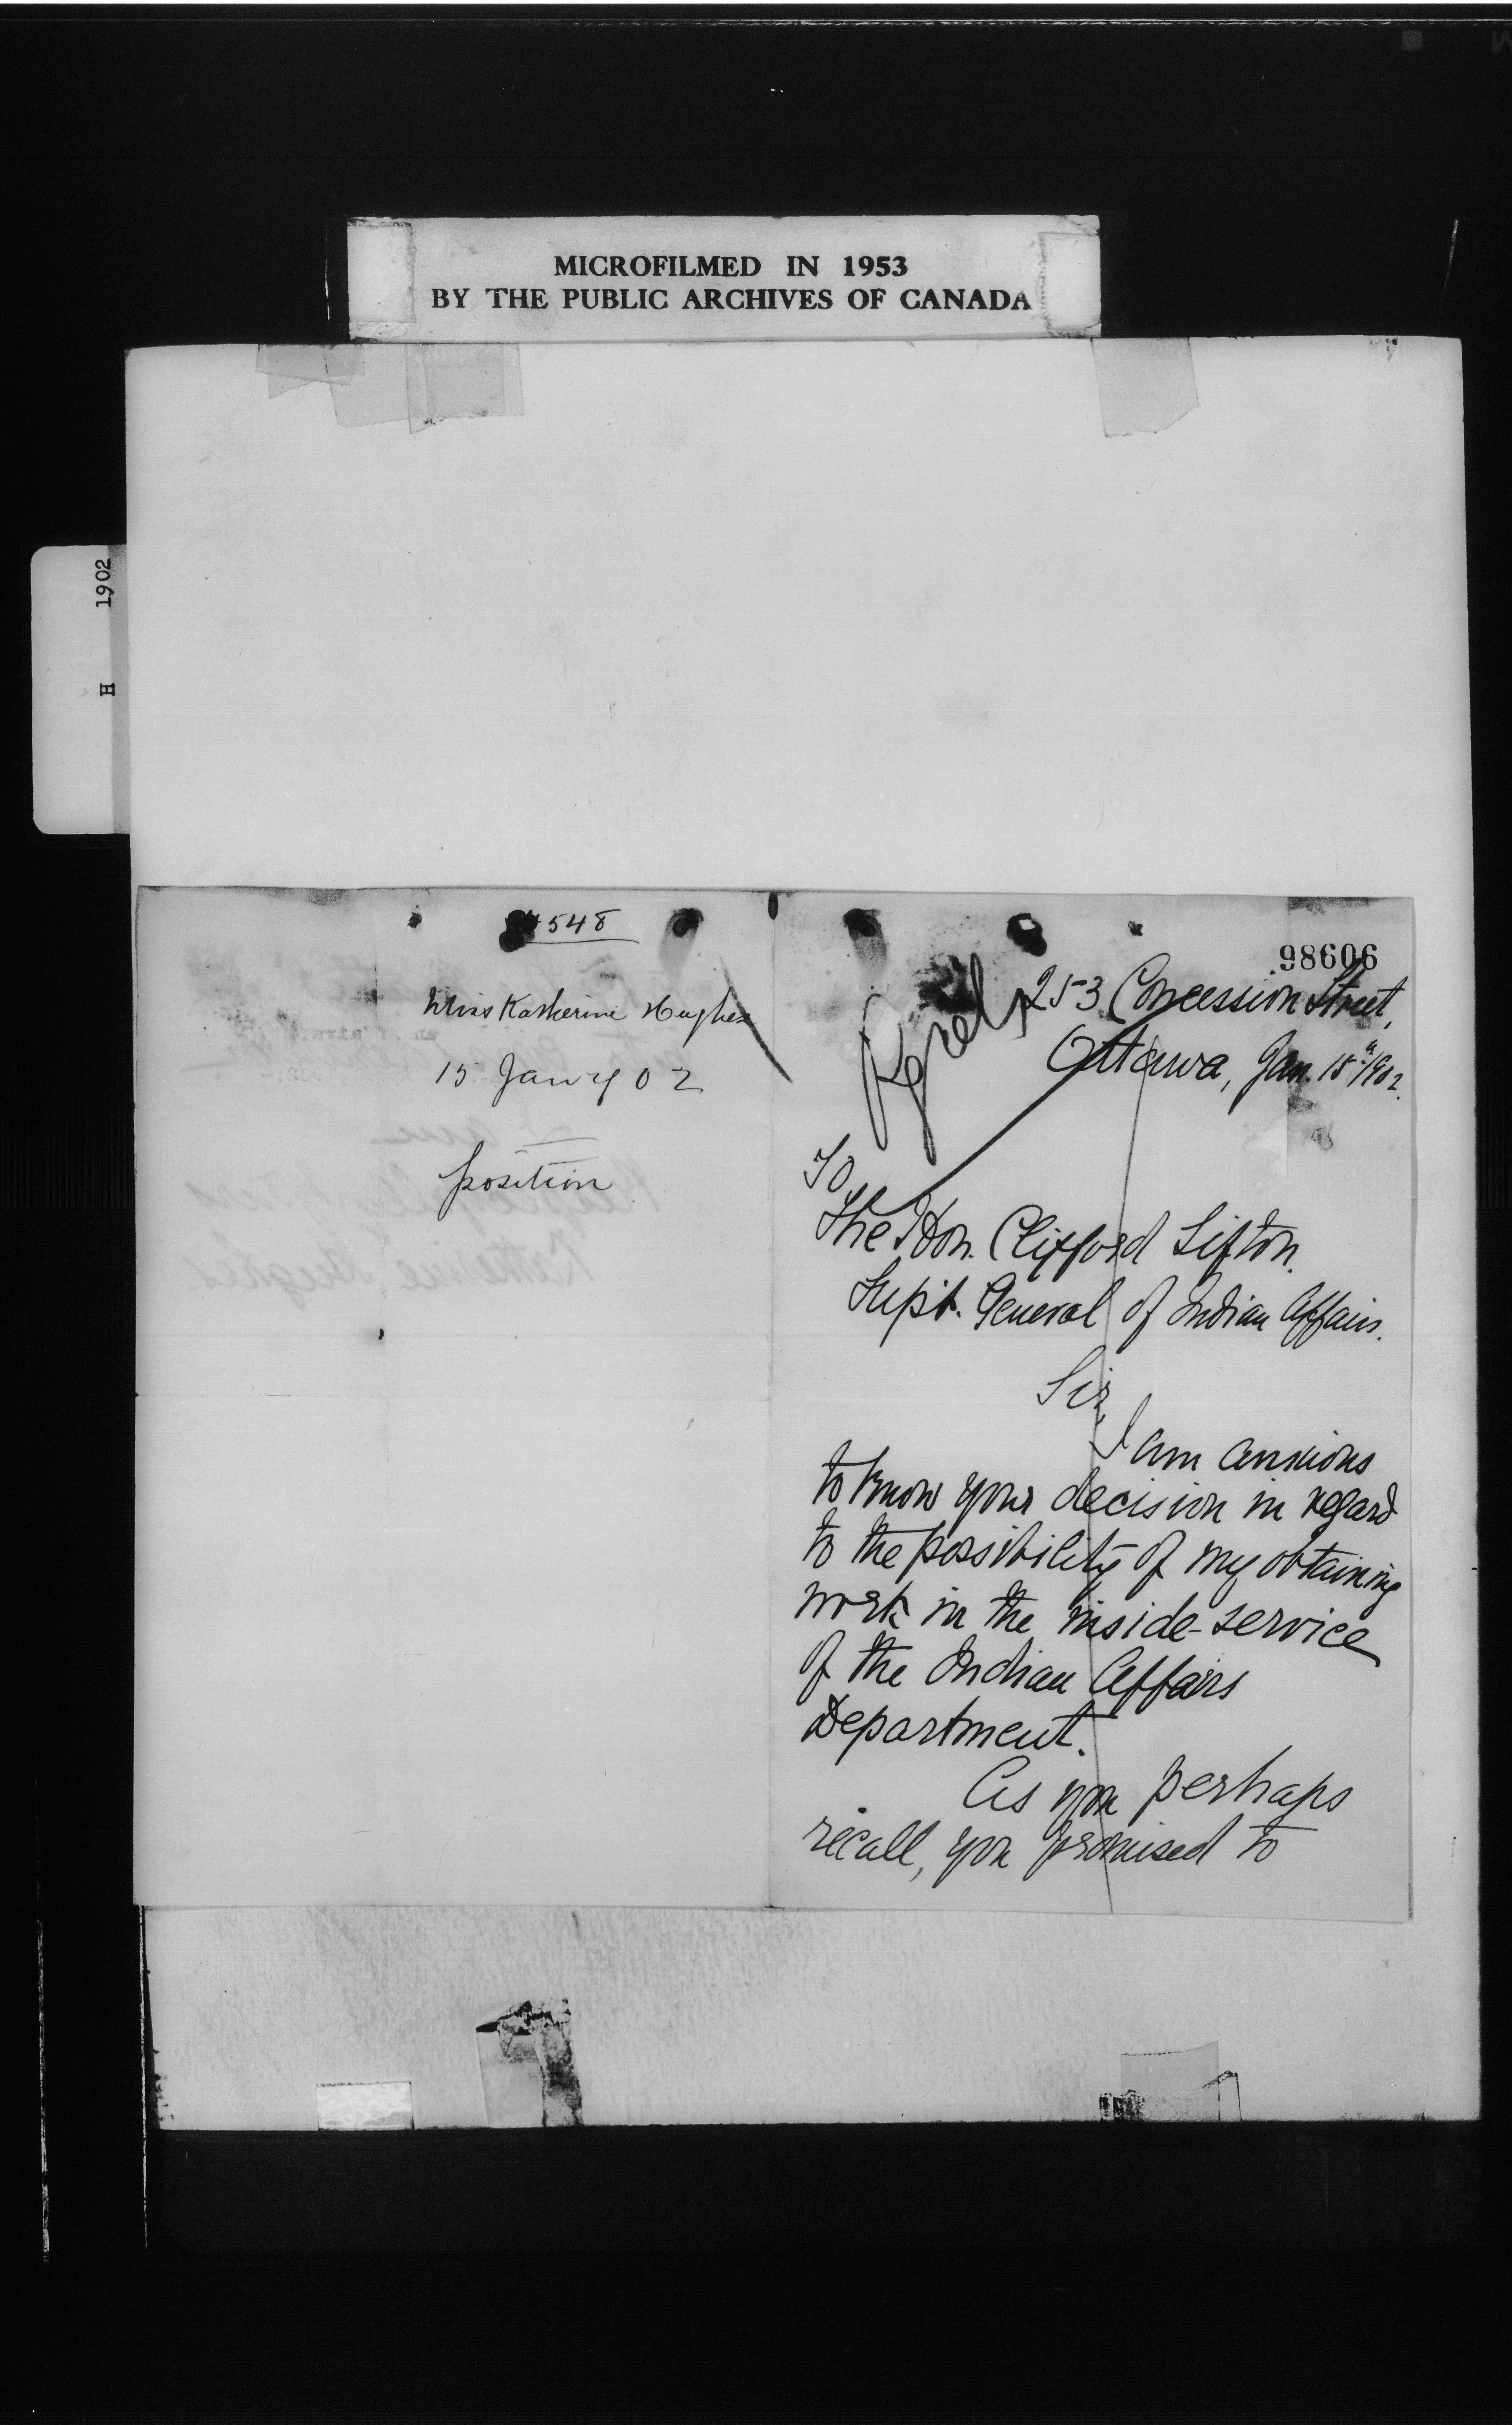 MICROFILMED IN 1953
BY THE PUBLIC ARCHIVES OF CANADA
H 1902
548
Miss Katherine Hughes
15 Jany 02
position
98606
253 Concession Street,
Ottawa, Jan. 15th 1902.
To
The Hon. Clifford Sifton.
Supt. General of Indian Affairs.
Sir,
I am anxious
to know your decision in regard
to the possibility of my obtaining
work in the inside-service
of the Indian Affairs
Department.
As you perhaps
recall, you promised to